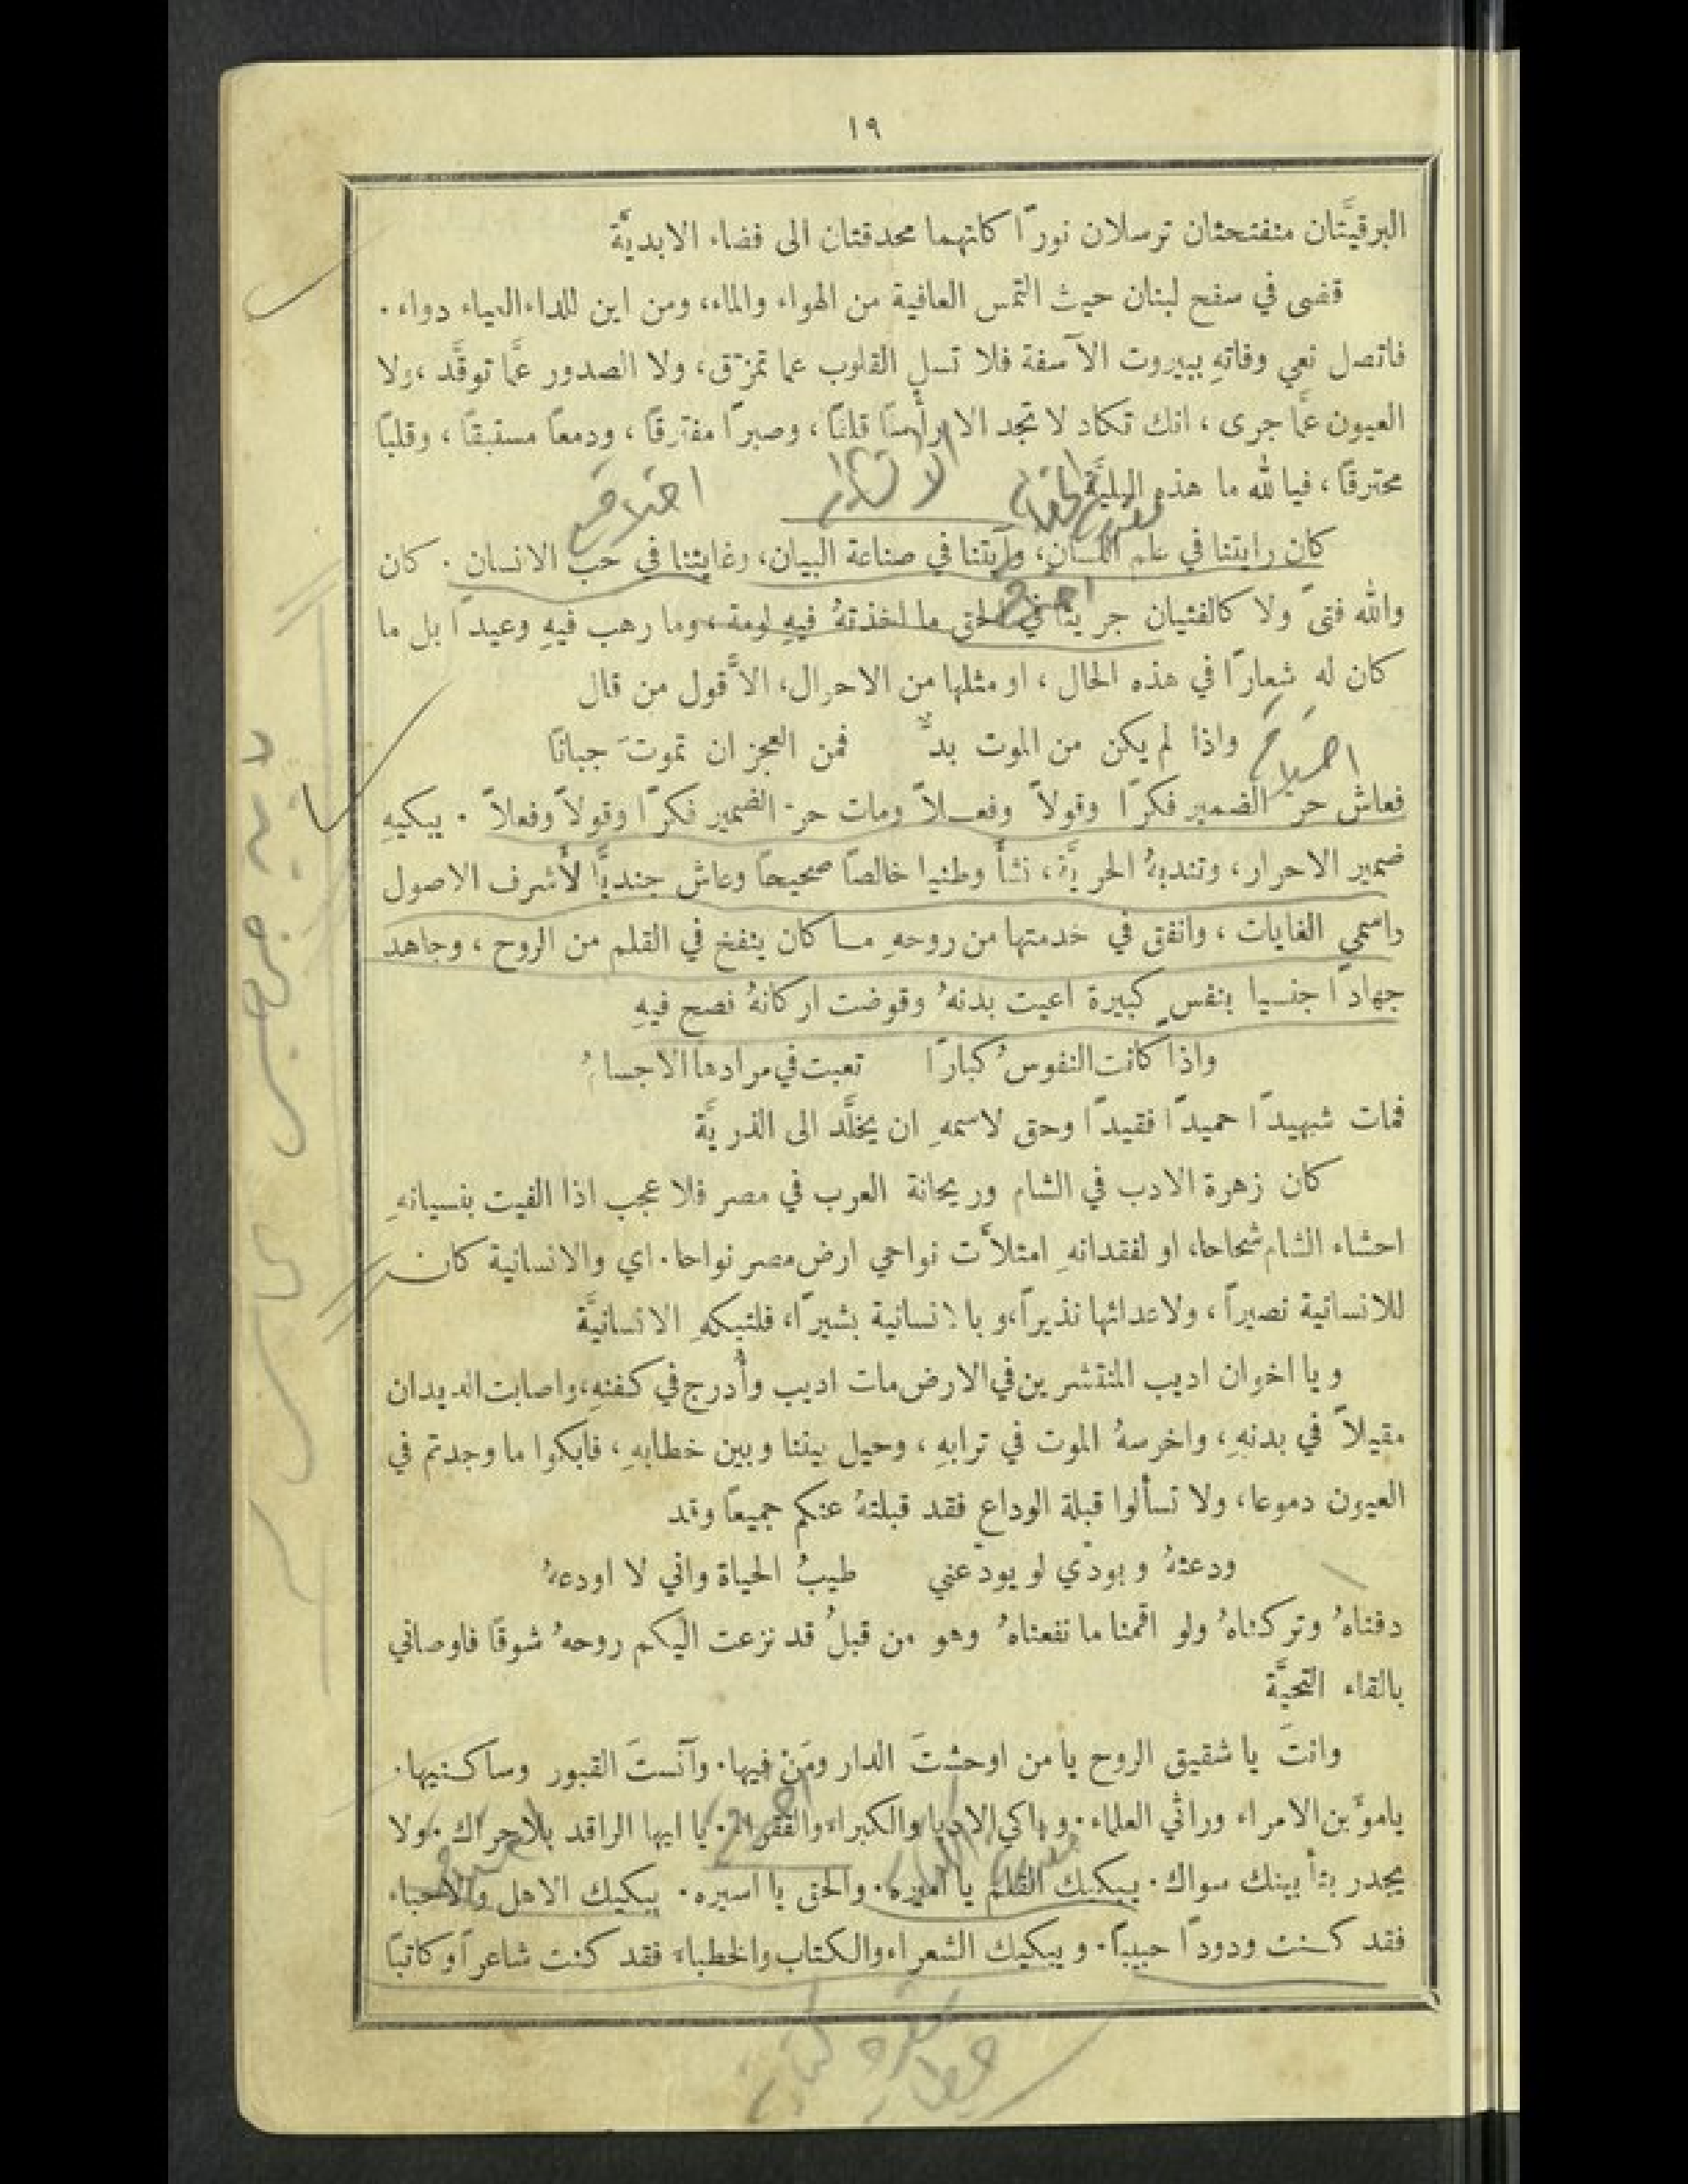 ١٩
البرقيَّتان متفتحتان ترسلان نورًا كانهما محدقتان الى فضاء الابديَّة
قضى في سفح لبنان حيث التمس العافية من الهواء والماء، ومن اين للداء العياء دواء.
فاتصل نعي وفاتهِ ببيروت الآسفة فلا تسل القلوب عما تمزّق، ولا الصدور عمَّا توقَّد، ولا
العيون عمَّا جرى، انك تكاد لا تجد الا رأسًا قلقًا، وصبرًا مفترقًا، ودمعًا مستبقًا، وقلبًا
محترقًا، فيا لله ما هذه البليَّة
الانشاء
اخلاقه
كان رايتنا في علم اللسان، وآيتنا في صناعة البيان، وغايتنا في حب الانسان. كان
والله فتىً ولا كالفتيان جريئًا في الحق ما اخذتهُ فيهِ لومة، وما رهب فيهِ وعيدًا بل ما
كان له شعارًا في هذه الحال، او مثلها من الاحوال، الاَّ قول من قال
واذا لم يكن من الموت بدٌّ فمن العجز ان تموتَ جبانًا
فعاش حرّ الضمير فكرًا وقولاً وفعـلاً ومات حرّ الضمير فكرًا وقولاً وفعلاً. يبكيهِ
ضمير الاحرار، وتندبهُ الحريَّة، نشأَ وطنيا خالصًا صحيحًا وعاش جنديًّا لأشرف الاصول
واسمى الغايات، وانفق في خدمتها من روحهِ مـا كان ينفخ في القلم من الروح، وجاهد
جهادًا جنسيا بنفسٍ كبيرة اعيت بدنهُ وقوضت اركانهُ فصح فيهِ
واذا كانت النفوسُ كبارًا تعبت في مرادها الاجسامُ
فمات شهيدًا حميدًا فقيدًا وحق لاسمهِ ان يخلَّد الى الذريَّة
كان زهرة الادب في الشام وريحانة العرب في مصر فلا عجب اذا الفيت بنسيانهِ
احشاء الشام شحاحا، او لفقدانهِ امتلأت نواحي ارض مصر نواحا. اي والانسانية كان
للانسانية نصيراً، ولاعدائها نذيراً، وبالانسانية بشيرًا، فلتبكهِ الانسانيَّة
ويا اخوان اديب المنتشرين في الارض مات اديب وأُدرج في كفنهِ، واصابت الديدان
مقيلاً في بدنهِ، واخرسهُ الموت في ترابهِ، وحيل بيننا وبين خطابهِ، فابكوا ما وجدتم في
العيون دموعا، ولا تسألوا قبلة الوداع فقد قبلتهُ عنكم جميعًا وقد
ودعتهُ وبودّي لو يودّعني طيبُ الحياة واني لا اودعهُ
دفناهُ وتركناهُ ولو اقمنا ما نفعناهُ وهو من قبلُ قد نزعت اليكم روحهُ شوقًا فاوصاني
بالقاء التحيَّة
وانتَ يا شقيق الروح يا من اوحشتَ الدار ومَنْ فيها. وآنستَ القبور وساكـنيها.
يا موَّبن الامراء وراثي العلماء. وباكي الادباء والكبراء والفقراء. يا ايها الراقد بلا حراك. ولا
يجدر بتأبينك سواك. يبكيك القلم يا اميره. والحق يا اسيره. يبكيك الاهل والاحباء
فقد كـنت ودودًا حبيبًا. ويبكيك الشعراء والكتاب والخطباء فقد كنت شاعراً وكاتبًا